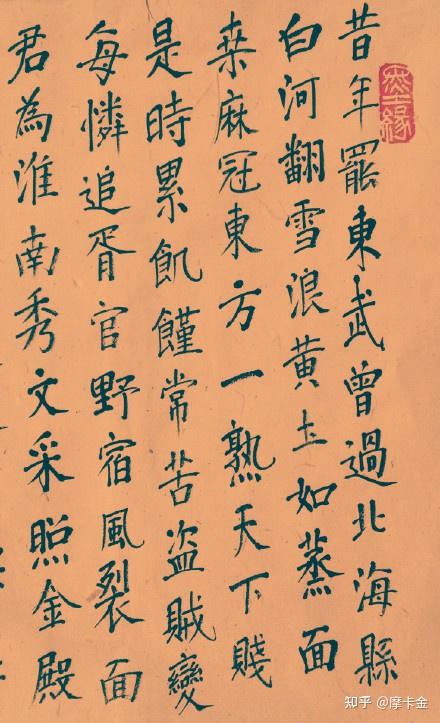 昔年罷東武曾過北海縣
白河翻雪浪黃土如蒸面
桒麻冠東方一熟天下賤
是時累飢饉常苦盜賊變
每憐追胥官野宿風裂面
君為淮南秀文采照金殿
知乎 @摩卡金